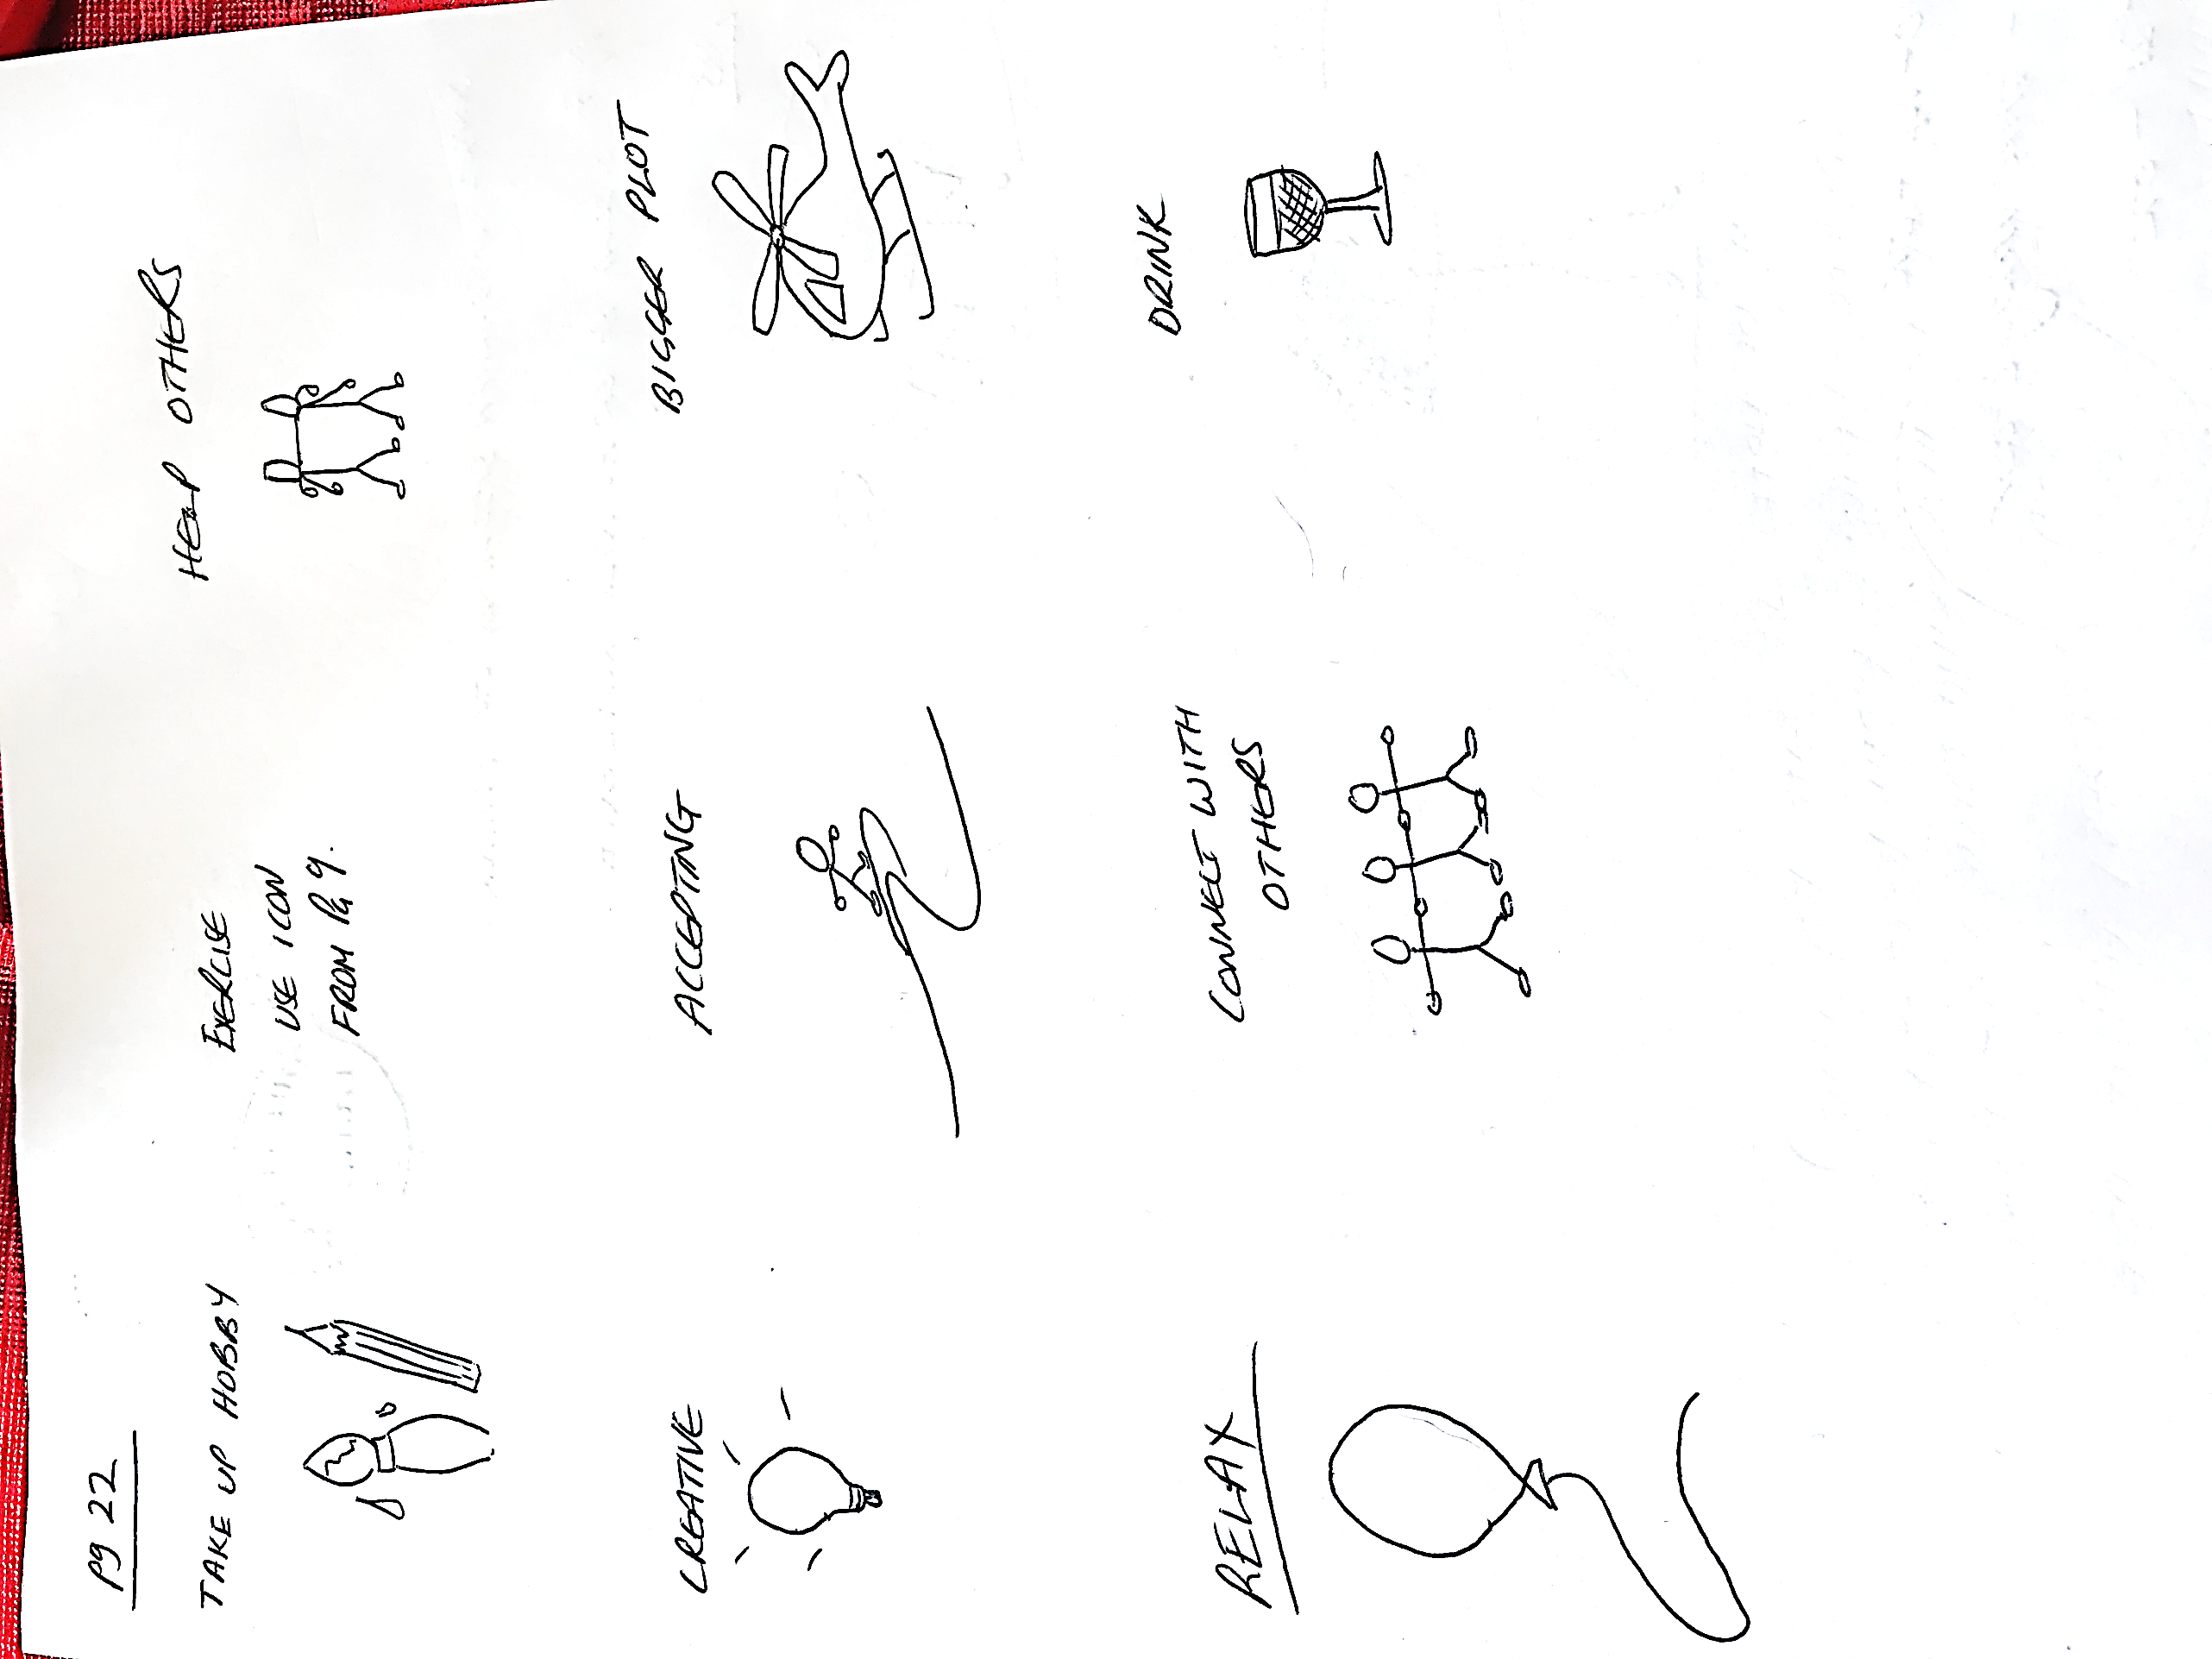 Pg 22
TAKE UP HOBBY
EXERCISE
USE ICON
FROM Pg 9.
HELP OTHERS
CREATIVE
ACCEPTING
BIGGER PLOT
RELAX
CONNECT WITH
OTHERS
DRINK